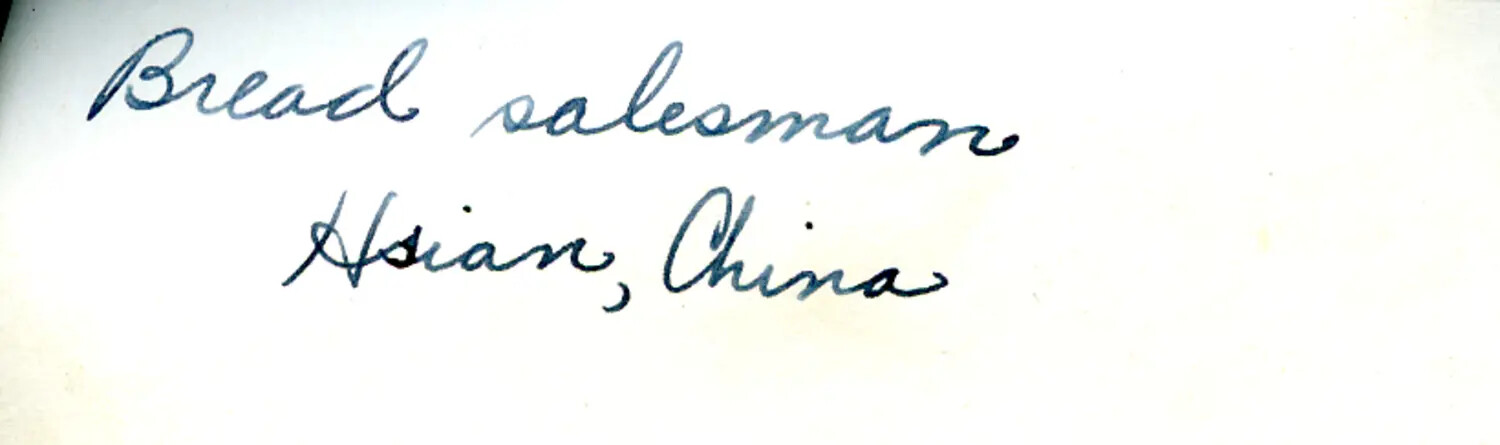 Bread salesman
Hsian, China